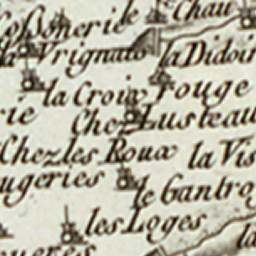 le Chau
Cossonerie
la Vrignais la Didoir
la Croix rouge
rie Chez Lusteau
Chez les Roux la Vis
ugeries le Gantro
les Loges
la